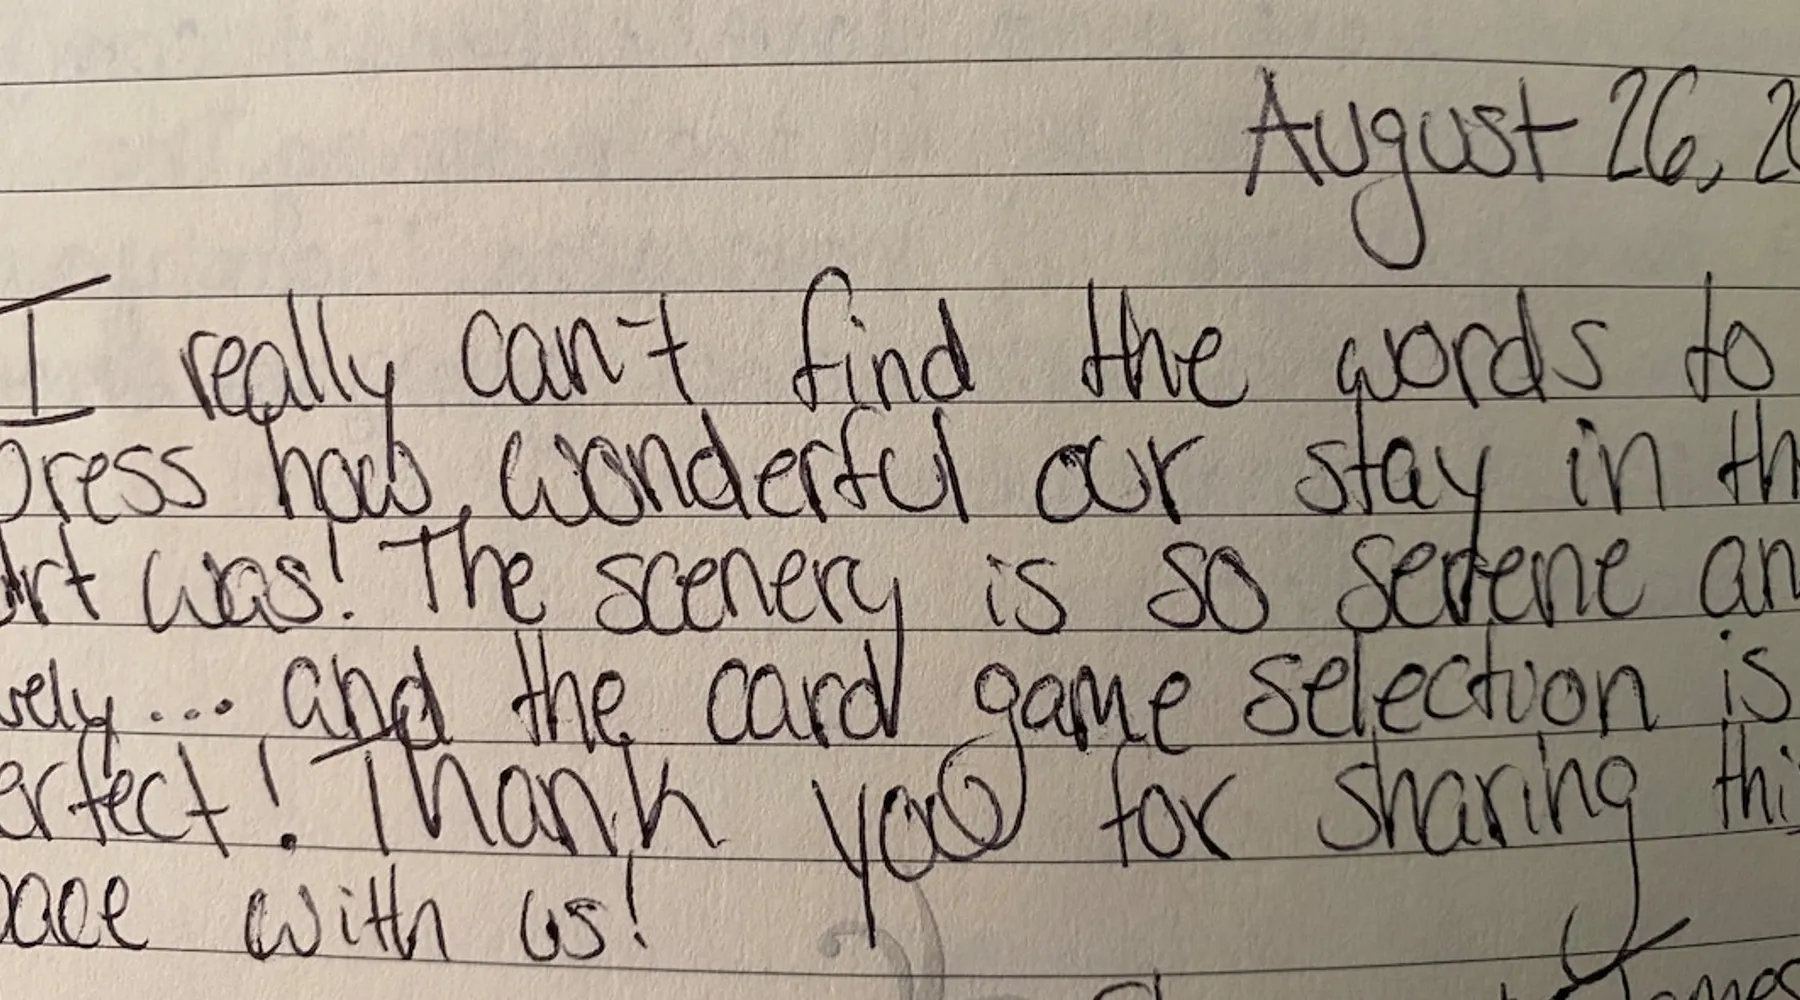 August 26, 20
I really can't find the words to
press how wonderful our stay in th
urt was! The scenery is so serene an
vely... and the card game selection is
erfect! Thank you for sharing thi
pace with us!